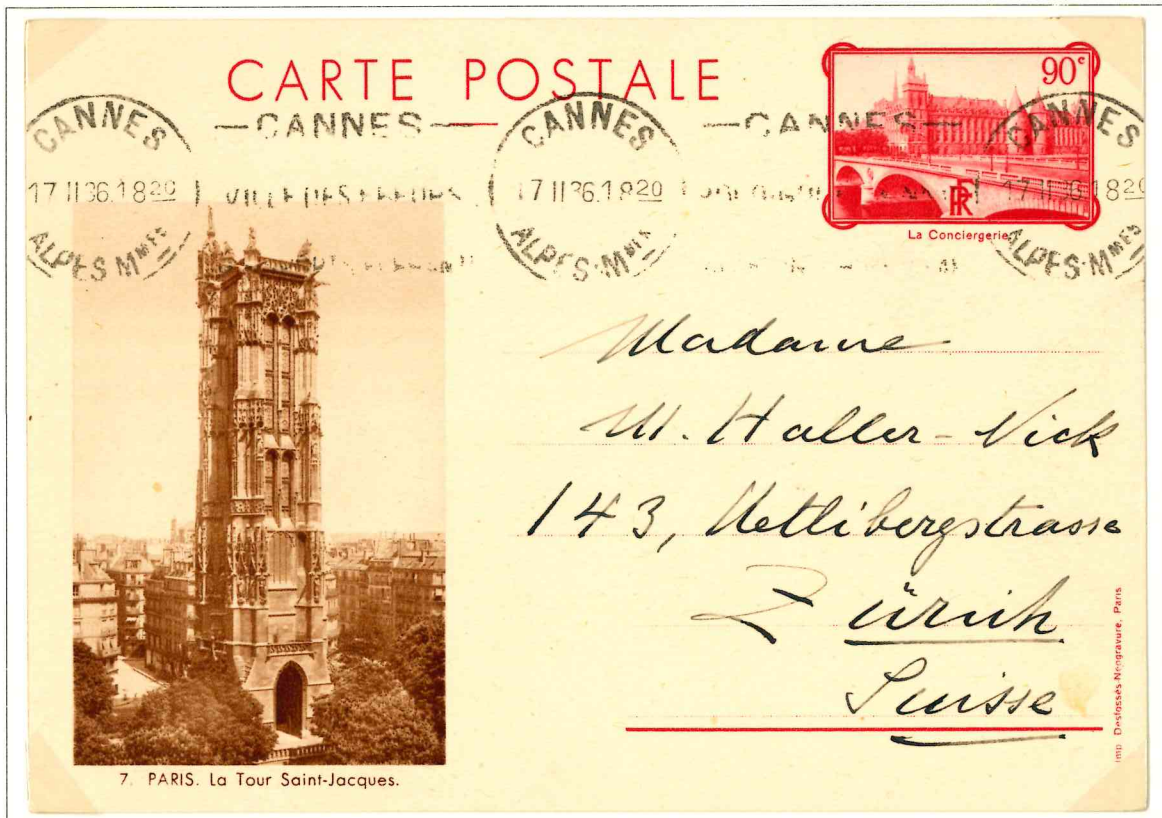 CARTE POSTALE
90c
CANNES
17 II 36. 18 20
ALPES-Mmes
—CANNES—
VILLE DES FLEURS
CANNES
17 II 36. 18 20
ALPES-Mmes
—CANNES—
CANNES
17 II 36. 18 20
ALPES-Mmes
RF
La Conciergerie
Madame
M. Haller-Vick
143, Uetlibergstrasse
Zürich
Suisse
7. PARIS. La Tour Saint-Jacques.
Imp. Desfossés-Néogravure, Paris